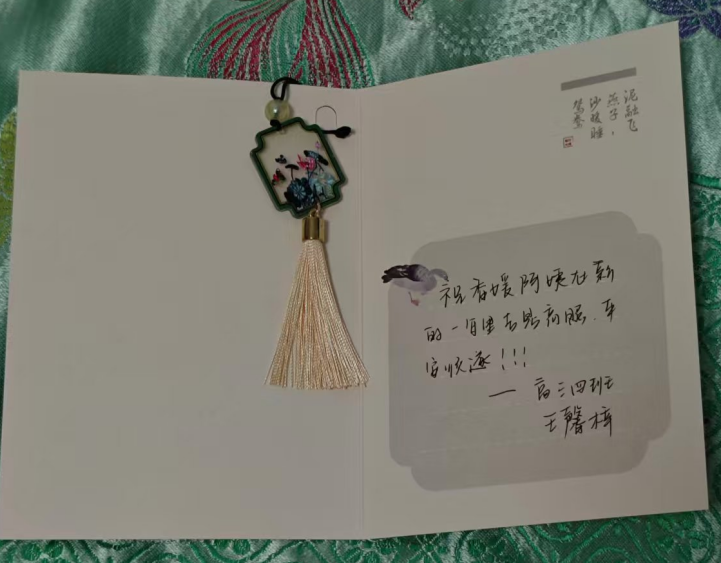 泥融飞
燕子，
沙暖睡
鸳鸯
祝香媛阿姨在新
的一年里吉星高照、平
安顺遂！！！
— 高三四班
王馨梓